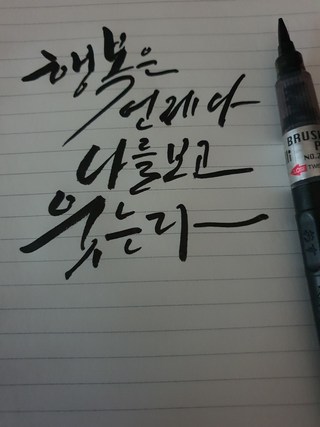 행복은
언제나
나를보고
웃는다
BRUSH
NO.2